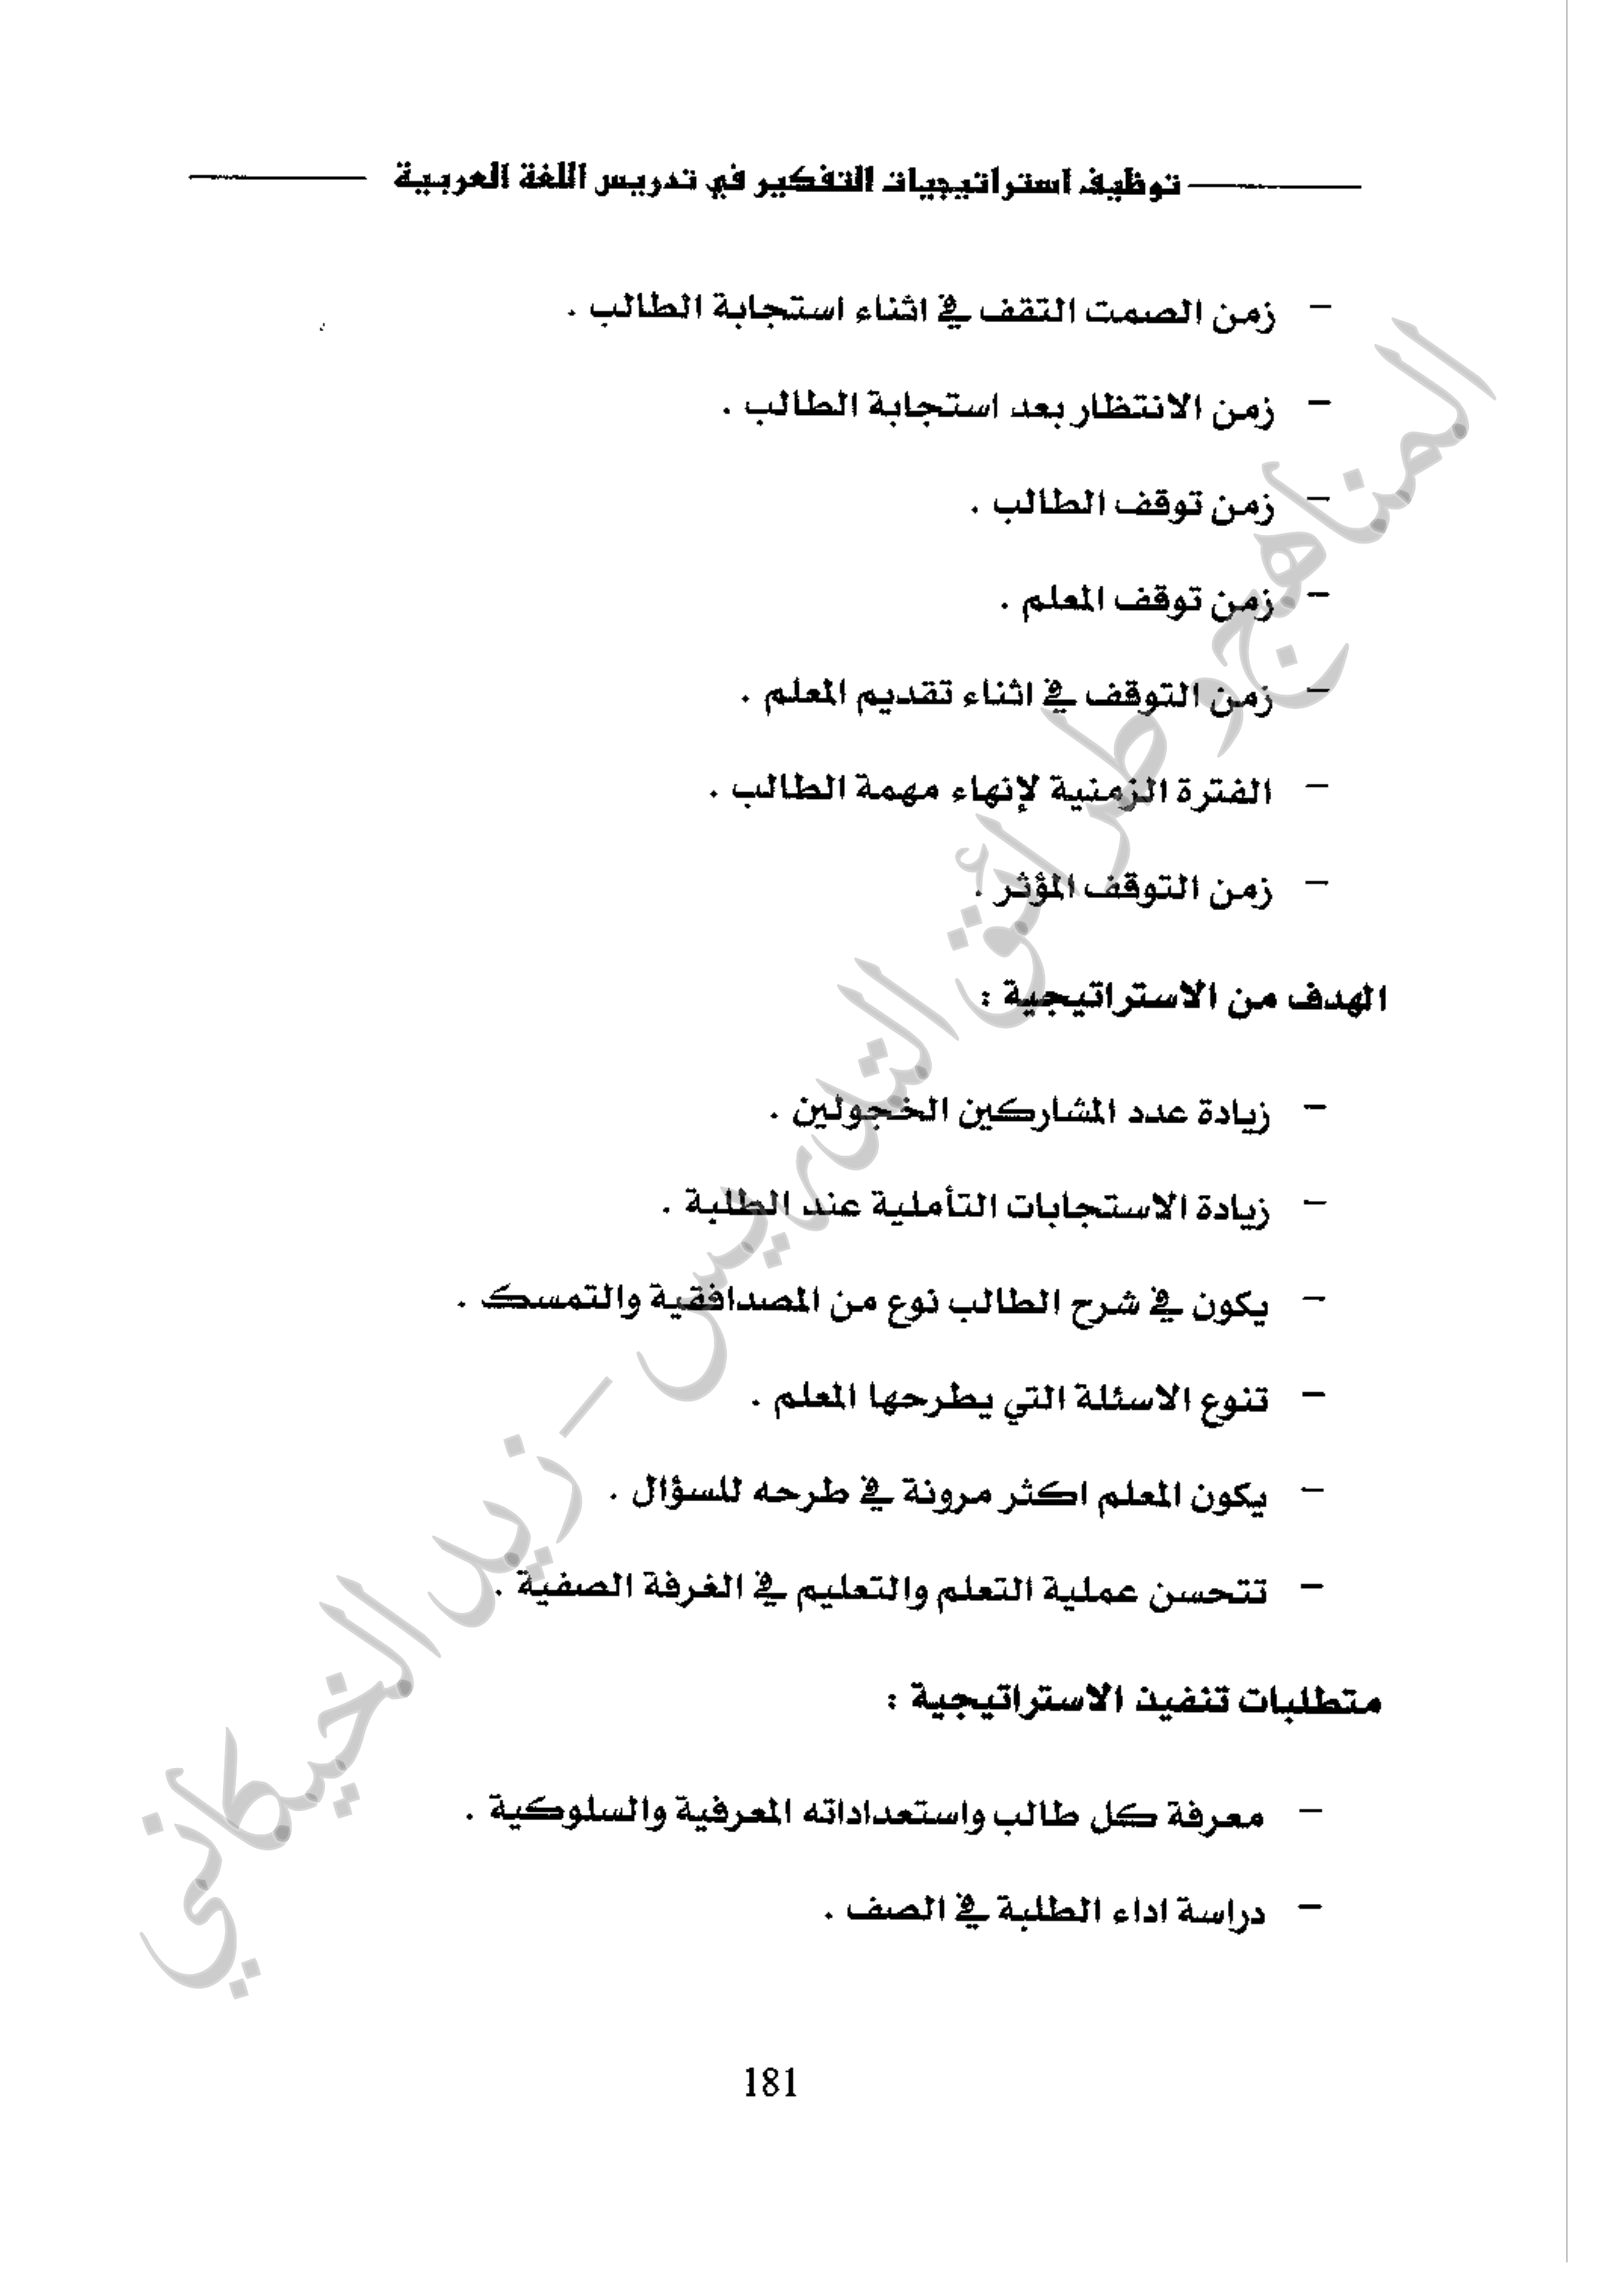 توظيف استراتيجيات التفكير في تدريس اللغة العربية
– زمن الصمت التقف في اثناء استجابة الطالب .
– زمن الانتظار بعد استجابة الطالب .
– زمن توقف الطالب .
– زمن توقف المعلم .
– زمن التوقف في اثناء تقديم المعلم .
– الفترة الزمنية لإنهاء مهمة الطالب .
– زمن التوقف المؤثر .
الهدف من الاستراتيجية :
– زيادة عدد المشاركين الخجولين .
– زيادة الاستجابات التأملية عند الطلبة .
– يكون في شرح الطالب نوع من المصدافقية والتمسك .
– تنوع الاسئلة التي يطرحها المعلم .
– يكون المعلم اكثر مرونة في طرحه للسؤال .
– تتحسن عملية التعلم والتعليم في الغرفة الصفية .
متطلبات تنفيذ الاستراتيجية :
– معرفة كل طالب واستعداداته المعرفية والسلوكية .
– دراسة اداء الطلبة في الصف .
181
المناهج وطرائق التدريس - زيد الخيكاني